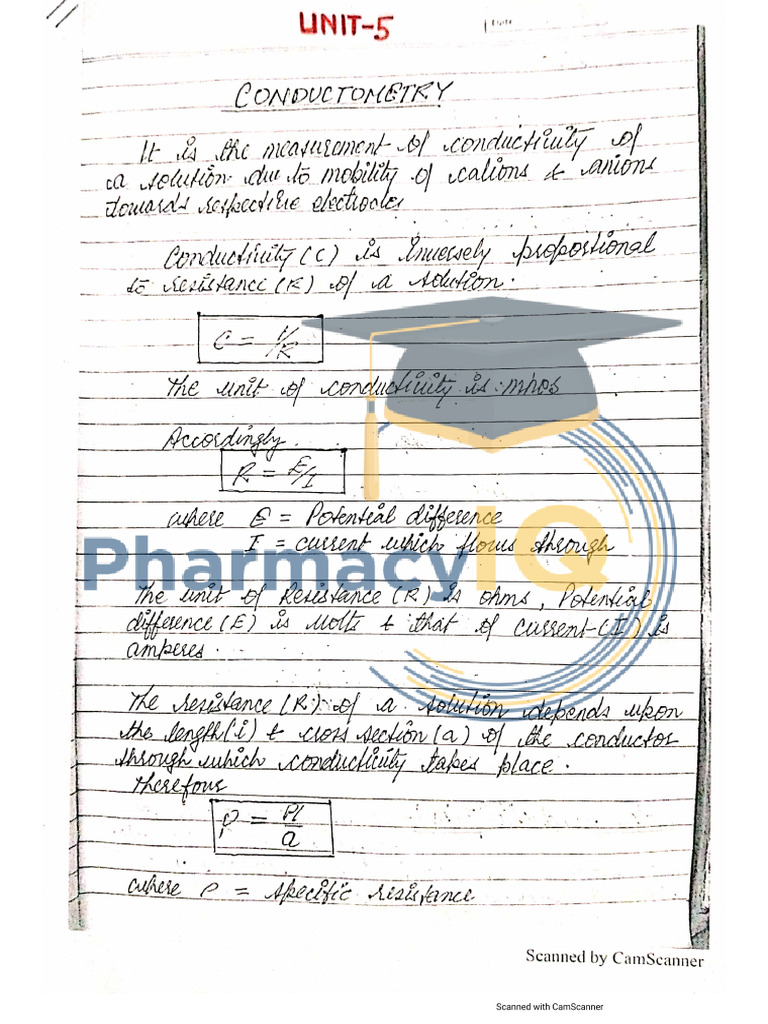 UNIT-5
Date
CONDUCTOMETRY
It is the measurement of conductivity of
a solution due to mobility of cations & anions
towards respective electrodes
Conductivity (C) is inversely proportional
to resistance (R) of a solution.
C = 1/R
The unit of conductivity is mhos
Accordingly.
R = E/I
where E = Potential difference
I = current which flows through
PharmacyIQ
The unit of Resistance (R) is ohms, Potential
difference (E) is Volts & that of current (I) is
amperes.
The resistance (R) of a solution depends upon
the length (l) & cross section (a) of the conductor
through which conductivity takes place.
Therefore
a
where ρ = specific resistance
Scanned by CamScanner
Scanned with CamScanner